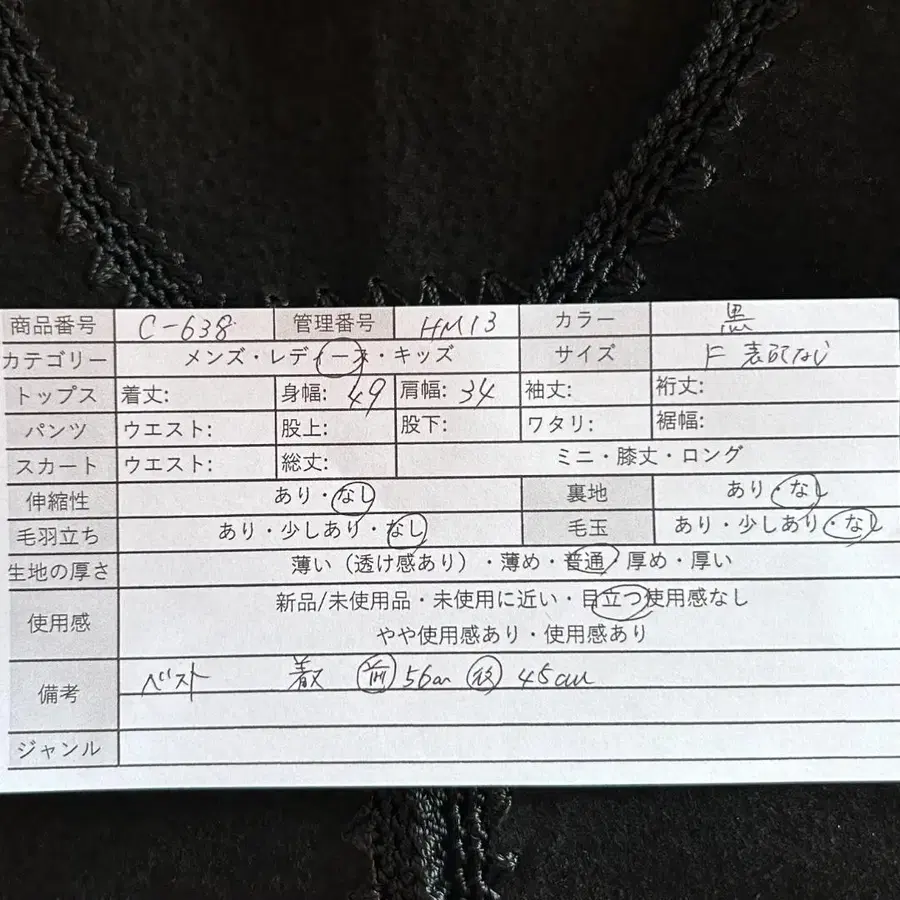 商品番号 C-638 管理番号 HM13 カラー 黒
カテゴリー メンズ・レディース・キッズ サイズ F 表記なし
トップス 着丈: 身幅: 49 肩幅: 34 袖丈: 裄丈:
パンツ ウエスト: 股上: 股下: ワタリ: 裾幅:
スカート ウエスト: 総丈: ミニ・膝丈・ロング
伸縮性 あり・なし 裏地 あり・なし
毛羽立ち あり・少しあり・なし 毛玉 あり・少しあり・なし
生地の厚さ 薄い（透け感あり）・薄め・普通・厚め・厚い
使用感 新品/未使用品・未使用に近い・目立つ使用感なし
やや使用感あり・使用感あり
備考 ベスト 着丈 前 56cm 後 45cm
ジャンル